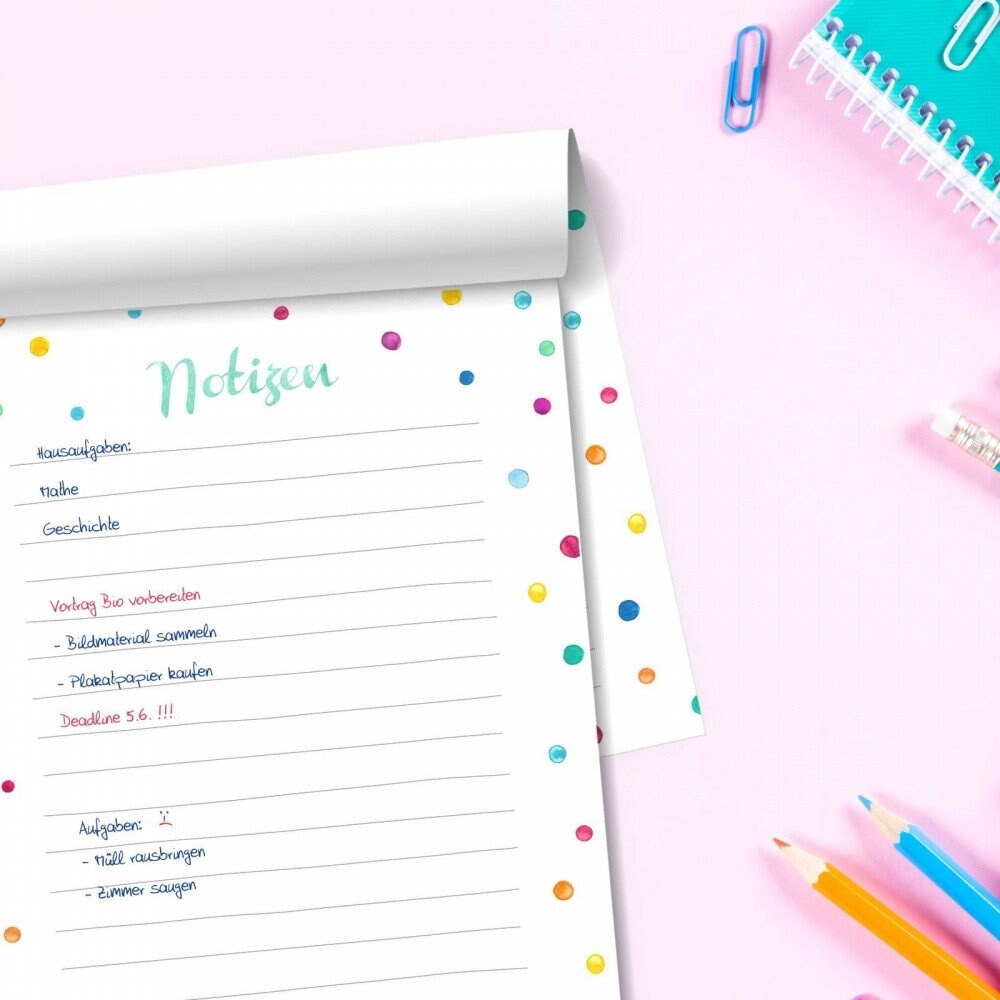 Notizen
Hausaufgaben:
Mathe
Geschichte
Vortrag Bio vorbereiten
- Bildmaterial sammeln
- Plakatpapier kaufen
Deadline 5.6. !!!
Aufgaben: :(
- Müll rausbringen
- Zimmer saugen